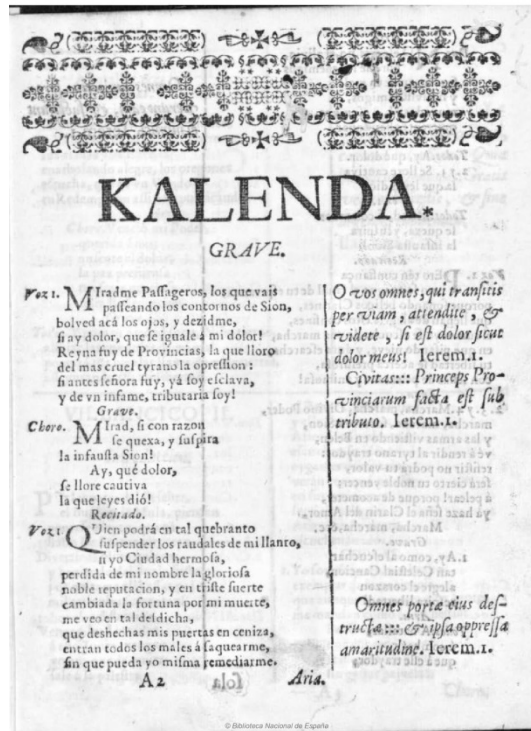 KALENDA.
GRAVE.
Voz 1. MIradme Passageros, los que vais
passeando los contornos de Sion,
bolved acá los ojos, y dezidme,
si ay dolor, que se iguale á mi dolor!
Reyna fuy de Provincias, la que lloro
del mas cruel tyrano la opression:
si antes señora fuy, yá soy esclava,
y de vn infame, tributaria soy!
Grave.
Choro. MIrad, si con razon
se quexa, y suspira
la infausta Sion!
Ay, qué dolor,
se llore cautiva
la que leyes dió!
Recitado.
Voz 1 QUien podrá en tal quebranto
suspender los raudales de mi llanto,
si yo Ciudad hermosa,
perdida de mi nombre la gloriosa
noble reputacion, y en triste suerte
cambiada la fortuna por mi muerte,
me veo en tal desdicha,
que deshechas mis puertas en ceniza,
entran todos los males á saquearme,
sin que pueda yo misma remediarme.
O vos omnes, qui transitis
per viam, attendite, &
videte, si est dolor sicut
dolor meus! Ierem.1.
Civitas::: Princeps Pro-
vinciarum facta est sub
tributo. Ierem.1.
Omnes portæ eius des-
tructæ:::: & ipsa oppressa
amaritudine. Ierem.1.
A2
Aria.
© Biblioteca Nacional de España